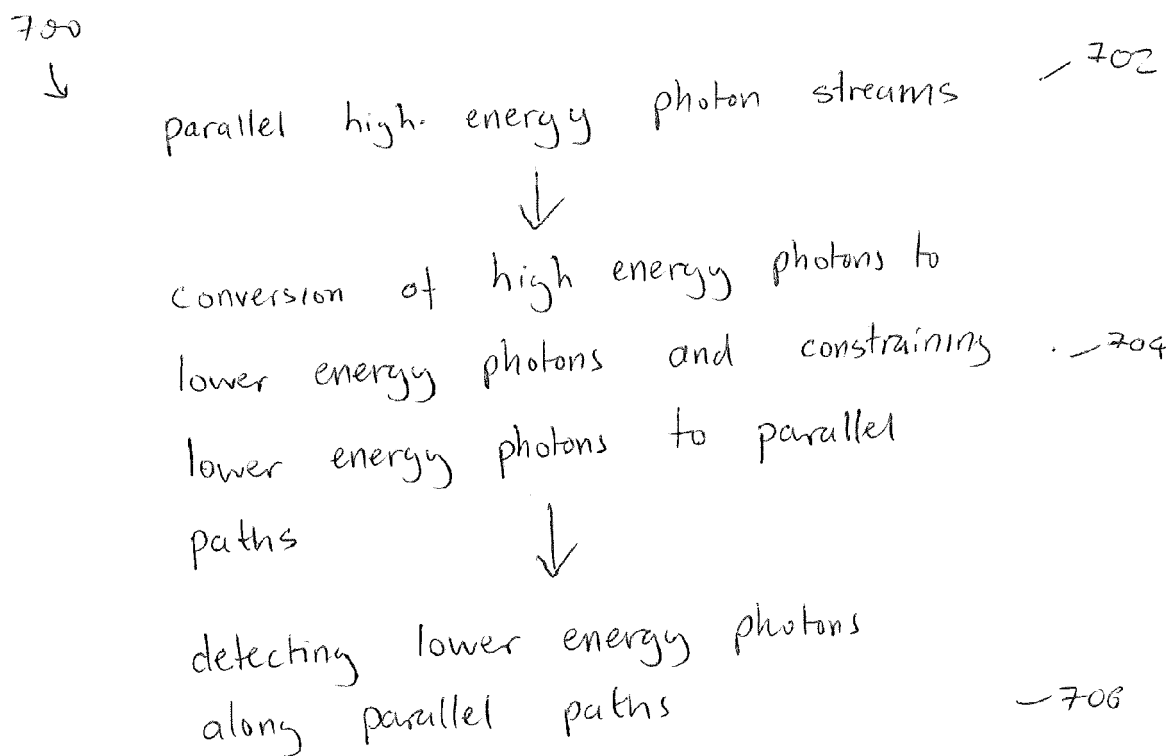 700
parallel high energy photon streams 702
conversion of high energy photons to
lower energy photons and constraining 704
lower energy photons to parallel
paths
detecting lower energy photons
along parallel paths 706